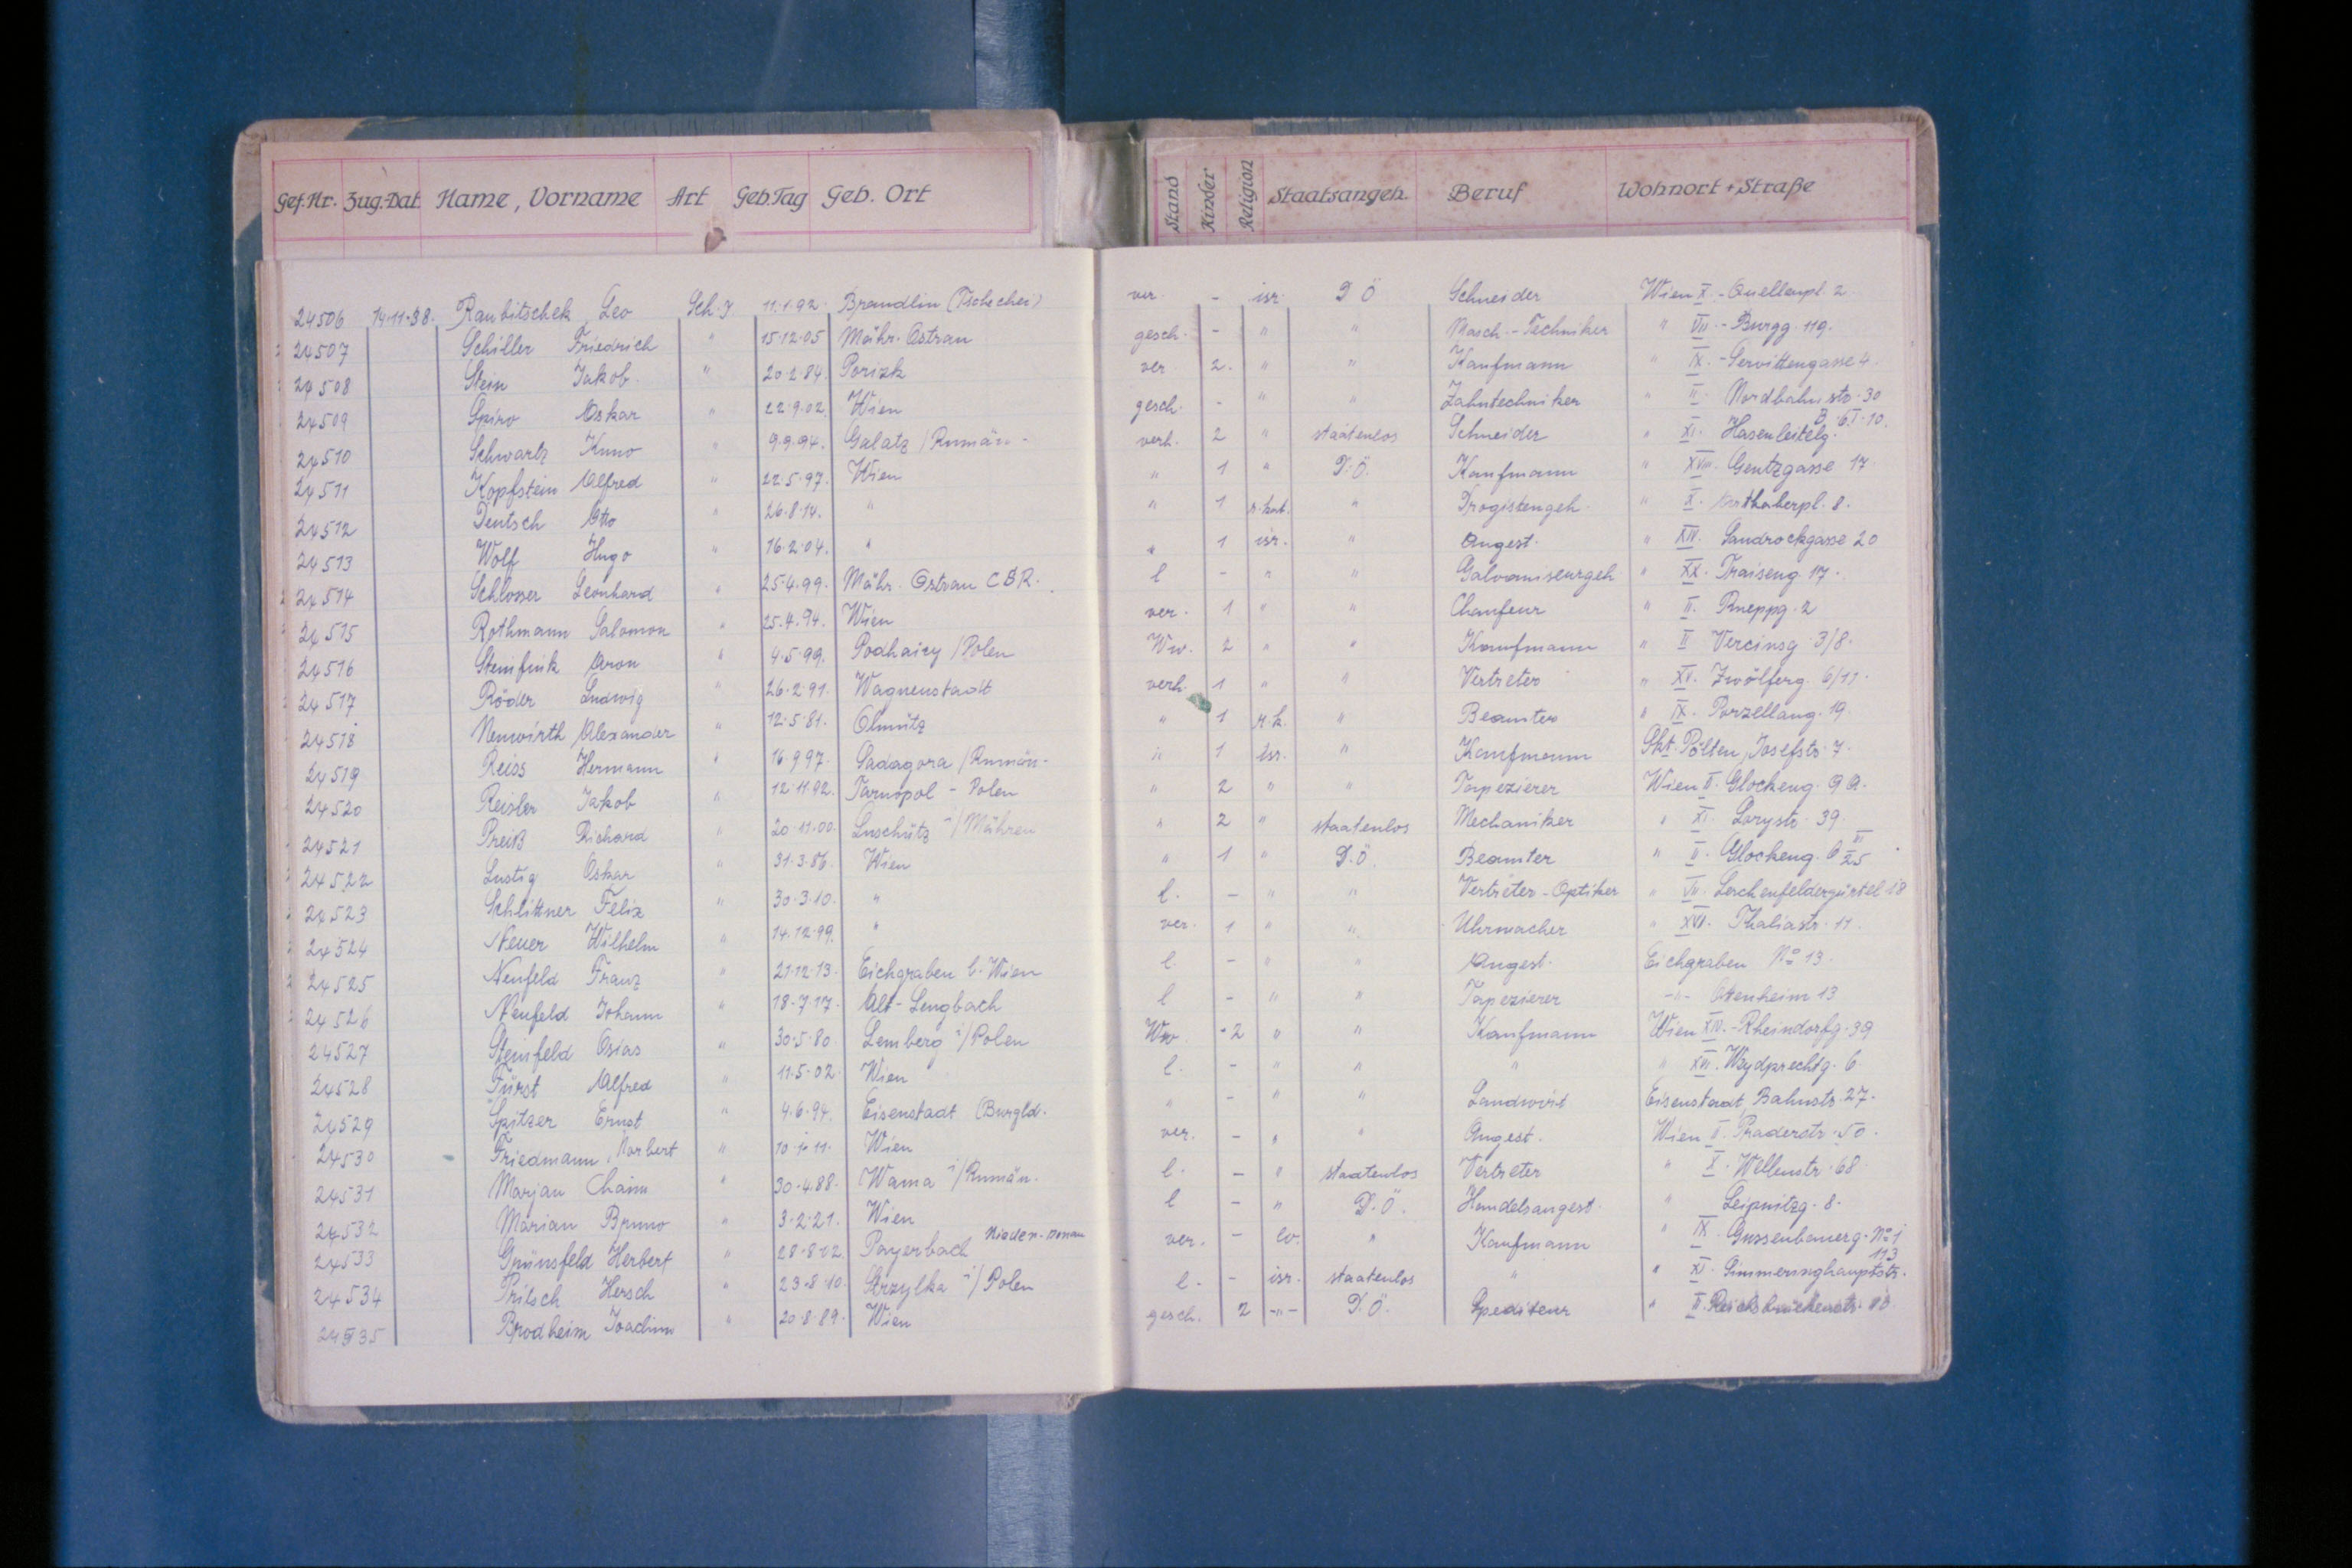 Gef.Nr. Zug.Dat. Name, Vorname Art Geb.Tag Geb. Ort Stand Kinder Religion Staatsangeh. Beruf Wohnort + Straße
24506 14.11.38. Raubitschek Leo Sch.J 11.1.92. Brandlin (Tschechei) ver. - isr. D Ö Schneider Wien X. - Quellenpl. 2.
24507 Schiller Friedrich " 15.12.05 Mähr. Ostrau gesch. - " " Masch.-Techniker " VII. - Burgg. 119.
24508 Stein Jakob. " 20.2.84. Porizk ver 2. " " Kaufmann " IX. - Servittengasse 4.
24509 Spiro Oskar " 22.9.02. Wien gesch. - " " Zahntechniker " II. Nordbahnstr. 30
24510 Schwartz Kuno " 9.9.94. Galatz / Rumän. verh. 2 " staatenlos Schneider " XI. Hasenleiteng. B. 6.I.10.
24511 Kopfstein Alfred " 22.5.97. Wien " 1 " D.Ö. Kaufmann " XVIII. Gentzgasse 17
24512 Deutsch Otto " 26.8.14. " " 1 r.kat. " Drogistengeh. " X. 8.
24513 Wolf Hugo " 16.2.04. " " 1 isr. " Angest. " XIV. Sandrockgasse 20
24514 Schlosser Leonhard " 25.4.99. Mähr. Ostrau C.S.R. l - " " Galvaniseurgeh. " XX. Traiseng. 17.
24515 Rothmann Salomon " 25.4.94. Wien ver. 1 " " Chaufeur " II. Rueppg. 2
24516 Steinfink Aron " 4.5.99. Podhaicy / Polen Ww. 2 " " Kaufmann " II Vereinsg. 3/8.
24517 Röder Ludwig " 26.2.91. Wagnenstadt verh. 1 " " Vertreter " XV. Zwölferg. 6/11.
24518 Neuwirth Alexander " 12.5.81. Olmütz " 1 r.k. " Beamter " IX. Porzellang. 19.
24519 Reiss Hermann " 16.9.97. Sadagora / Rumän. " 1 isr. " Kaufmann Skt. Pölten, Josefstr. 7.
24520 Reisler Jakob " 12.11.92. Tarnopol - Polen " 2 " " Tapezierer Wien II. Glockeng. 9 A.
24521 Preiß Richard " 20.11.00. Luschütz i/Mähren " 2 " staatenlos Mechaniker " XI. Lorystr. 39.
24522 Lustig Oskar " 31.3.86. Wien " 1 " D.Ö. Beamter " II. Glockeng. 6 VI/25
24523 Schlittner Felix " 30.3.10. " l. - " " Vertreter-Optiker " VII. Lerchenfeldergürtel 18
24524 Neuer Wilhelm " 14.12.99. " ver. 1 " " Uhrmacher " XVI. Thaliastr. 11.
24525 Neufeld Franz " 21.12.13. Eichgraben b. Wien l. - " " Angest. Eichgraben No 13.
24526 Neufeld Johann " 18.7.17. Alt-Lengbach l - " " Tapezierer -"- Ottenheim 13
24527 Steinfeld Osias " 30.5.80. Lemberg i/Polen Ww. 2 " " Kaufmann Wien XIV. - Rheindorfg. 39
24528 Fürst Alfred " 11.5.02. Wien l. - " " " " XVI. Weydprechtg. 6
24529 Spitzer Ernst " 4.6.94. Eisenstadt (Burgld. " - " " Landwirt Eisenstadt, Bahnstr. 27.
24530 Friedmann, Norbert " 10.1.11. Wien ver. - " " Angest. Wien II. Praderstr. 50.
24531 Marjan Chaim " 30.4.88. Wama i/Rumän. l. - " staatenlos Vertreter " X. Wellenstr. 68
24532 Marian Bruno " 3.2.21. Wien l - " D.Ö. Handelsangest. " Leipnitzg. 8.
24533 Grünsfeld Herbert " 28.8.02. Payerbach Nieder-Donau ver. - ev. " Kaufmann " IX. Gussenbauerg. No 1
24534 Pritsch Hersch " 23.8.10. Strzylka i/Polen l. - isr. staatenlos " " XI. Simmeringhauptstr. 113
24535 Brodheim Joachim " 20.8.89. Wien gesch. 2 -"- D.Ö. Spediteur " II. Reichsbrückenstr.